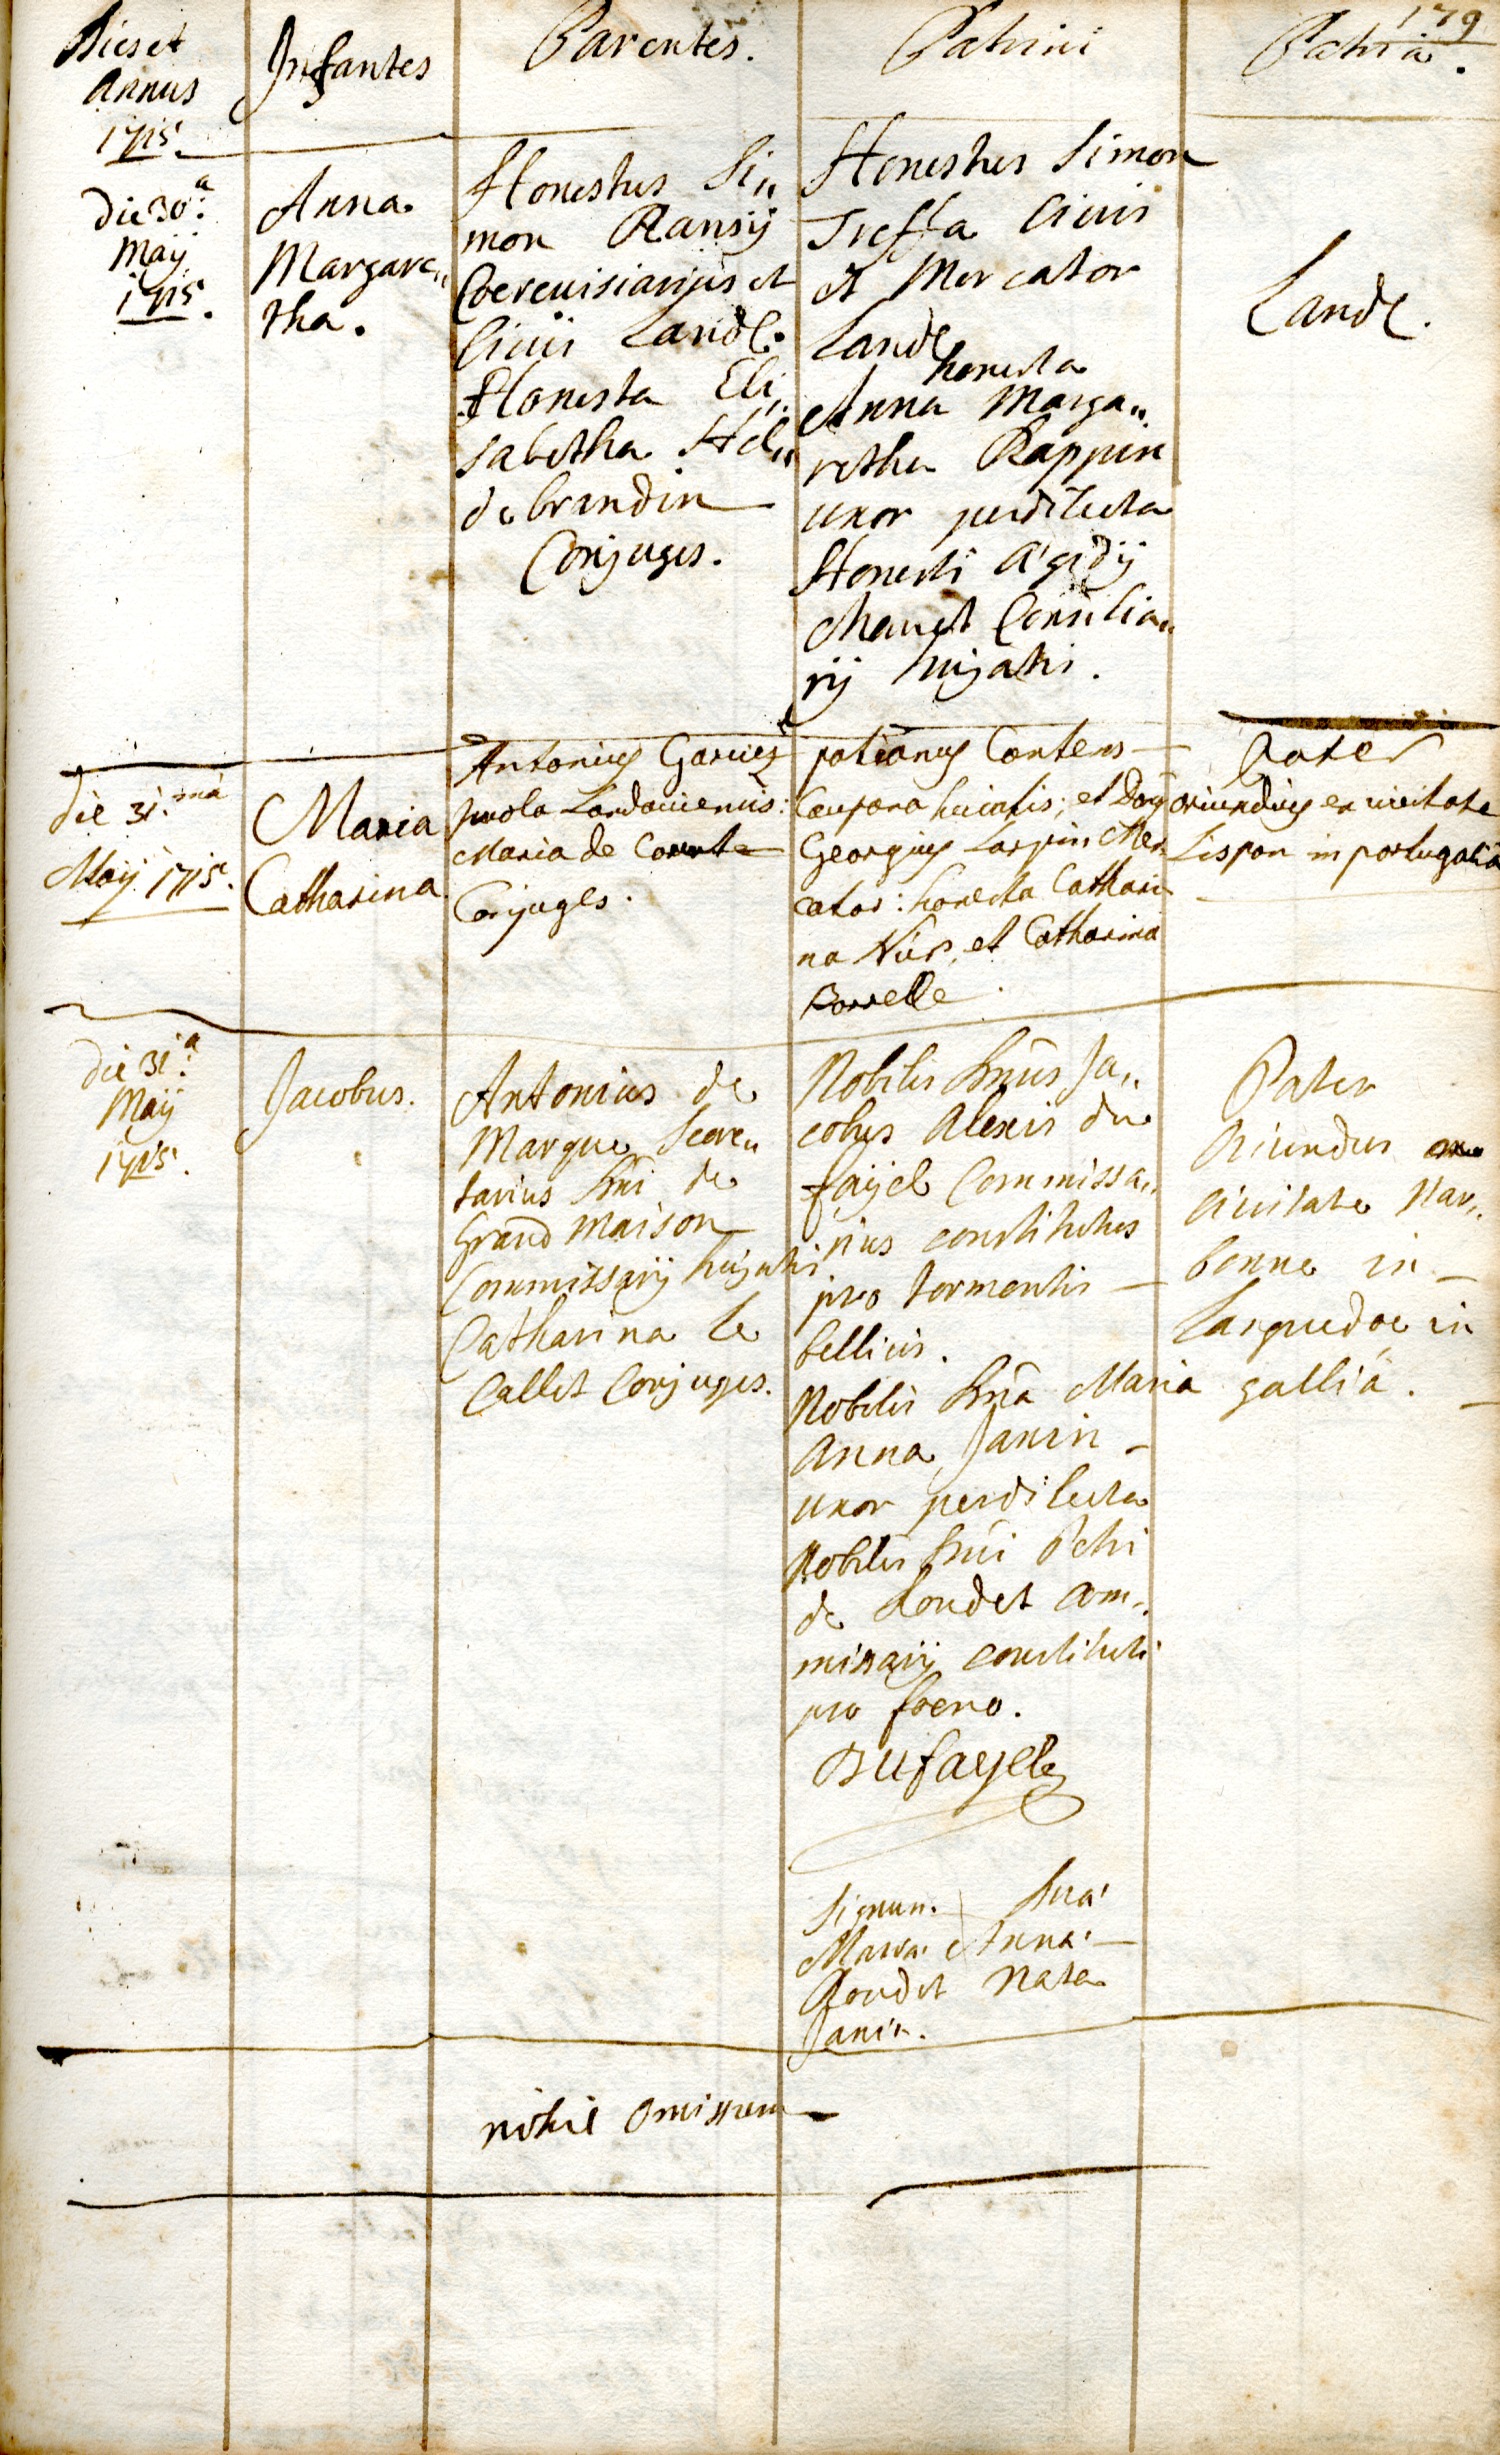 179
Dies et
Annus
1715.
Infantes
Parentes.
Patrini
Patria.
die 30.a
Maÿ
1715.
Anna
Margare„
tha.
Honestus Si„
mon Ransÿ
Coerevisiarius et
Civis Land.
Honesta Eli„
sabetha Hil„
debrandin
Conjuges.
Honestus Simon
Treffa Civis
et Mercator
Land.
honesta
Anna Marga„
retha Rappin
uxor perdilecta
Honesti Ægidÿ
Manet Consilia„
rÿ hujatis.
Land.
die 31.ma
Maÿ 1715.
Maria
Catharina
Antonius
Landaviensis:
Maria de
Conjuges.
Contens
hujatis; et
Georgius Larpin Mer
cator: honesta Cathari
na et Catharina
Pater
oriundus ex civitate
Lispon in portugalia
die 31.a
Maÿ
1715.
Jacobus.
Antonius de
Marque Secre„
tarius Dni de
Grand Maison
Commissarÿ hujatis
Catharina le
Callet Conjuges.
Nobilis Dnus Ja„
cobus Alexis du
faÿel Commissa„
rius constitutus
pro tormentis
bellicis.
Nobilis Dna Maria
Anna Janin
uxor perdilecta
Nobilis Dni Petri
de Loudet Com„
missarÿ constituti
pro foeno.
Dufayel
Signum. Dna
Maria Anna
Loudet Nata
Janin.
Pater
Oriundus ex
Civitate Nar„
bonne in
Languedoc in
gallia.
nihil omissum